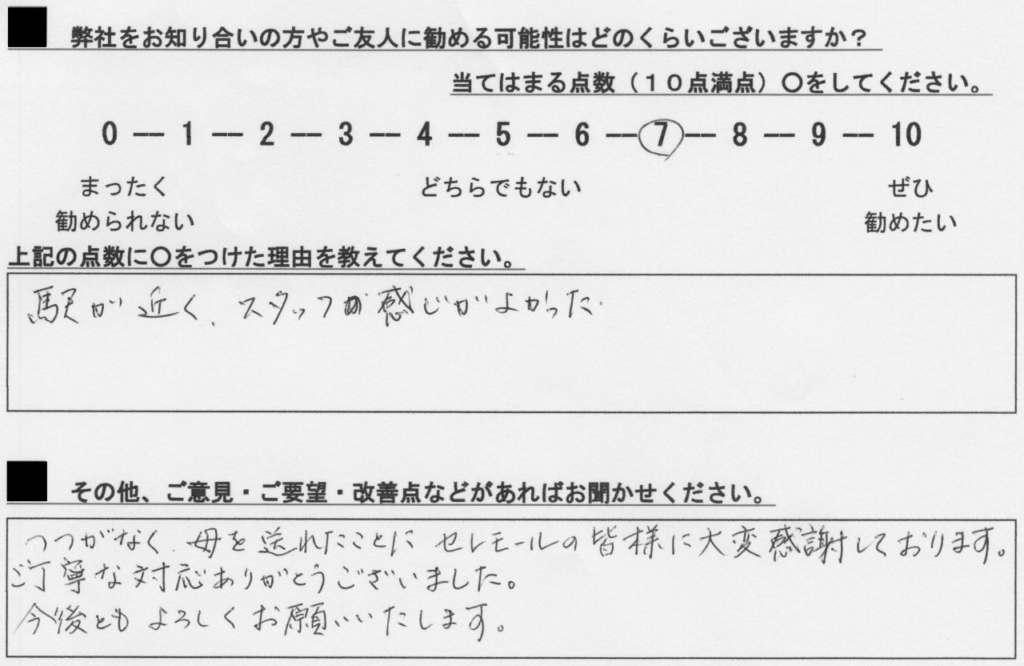 弊社をお知り合いの方やご友人に勧める可能性はどのくらいございますか?
当てはまる点数(10点満点)〇をしてください。
0 ―― 1 ―― 2 ―― 3 ―― 4 ―― 5 ―― 6 ―― 7 ―― 8 ―― 9 ―― 10
まったく どちらでもない ぜひ
勧められない 勧めたい
上記の点数に〇をつけた理由を教えてください。
駅が近く、スタッフが感じがよかった.
その他、ご意見・ご要望・改善点などがあればお聞かせください。
つつがなく、母を送れたことに セレモールの皆様に大変感謝しております。
ご丁寧な対応ありがとうございました。
今後ともよろしくお願いいたします。